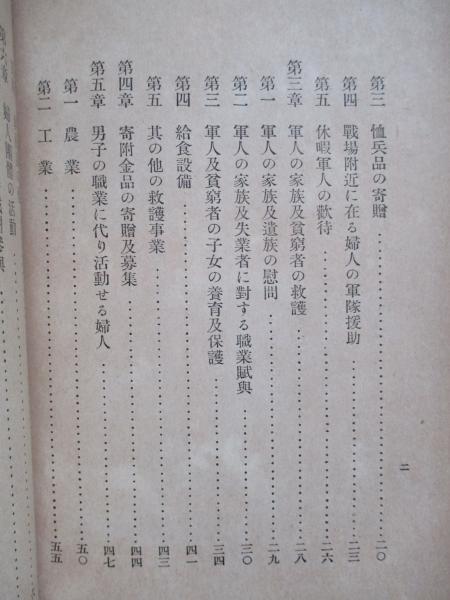 二
第三 恤兵品の寄贈……二〇
第四 戰場附近に在る婦人の軍隊援助……二三
第五 休暇軍人の歡待……二六
第三章 軍人の家族及貧窮者の救護……二八
第一 軍人の家族及遺族の慰問……二九
第二 軍人の家族及失業者に對する職業賦與……三〇
第三 軍人及貧窮者の子女の養育及保護……三四
第四 給食設備……四一
第五 其の他の救護事業……四三
第四章 寄附金品の寄贈及募集……四四
第五章 男子の職業に代り活動せる婦人……四七
第一 農業……五〇
第二 工業……五五
婦人團體の活動